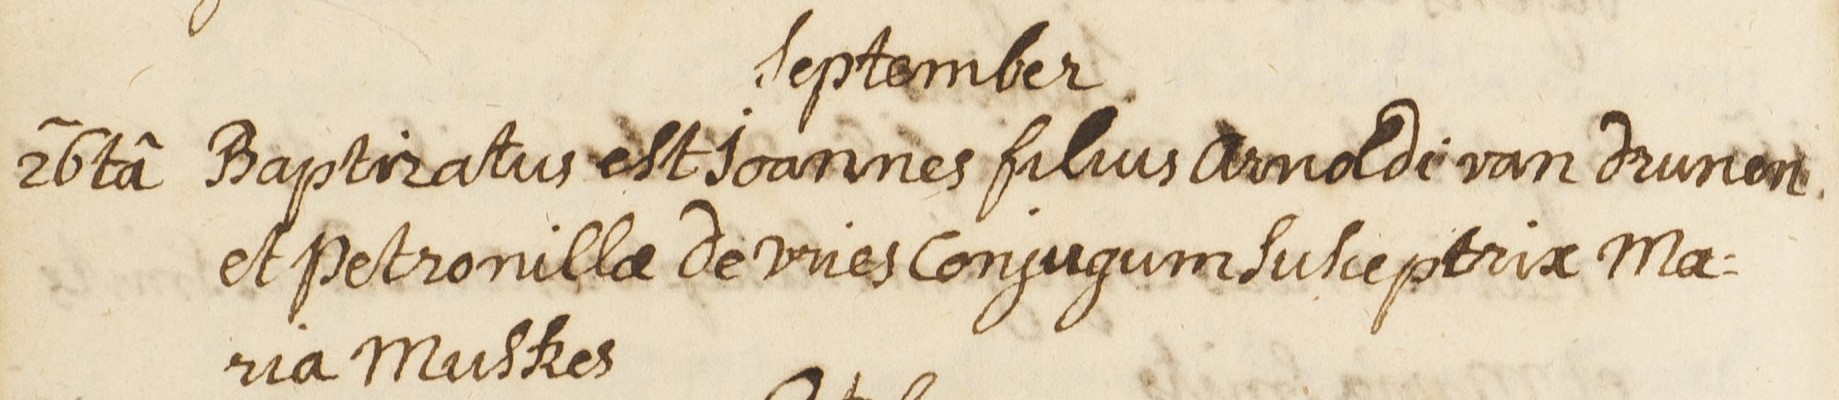 September
26tâ Baptizatus est Joannes filius Arnoldi van drunen.
et Petronillæ de vries Conjugum Susceptrix Ma=
ria Muskes